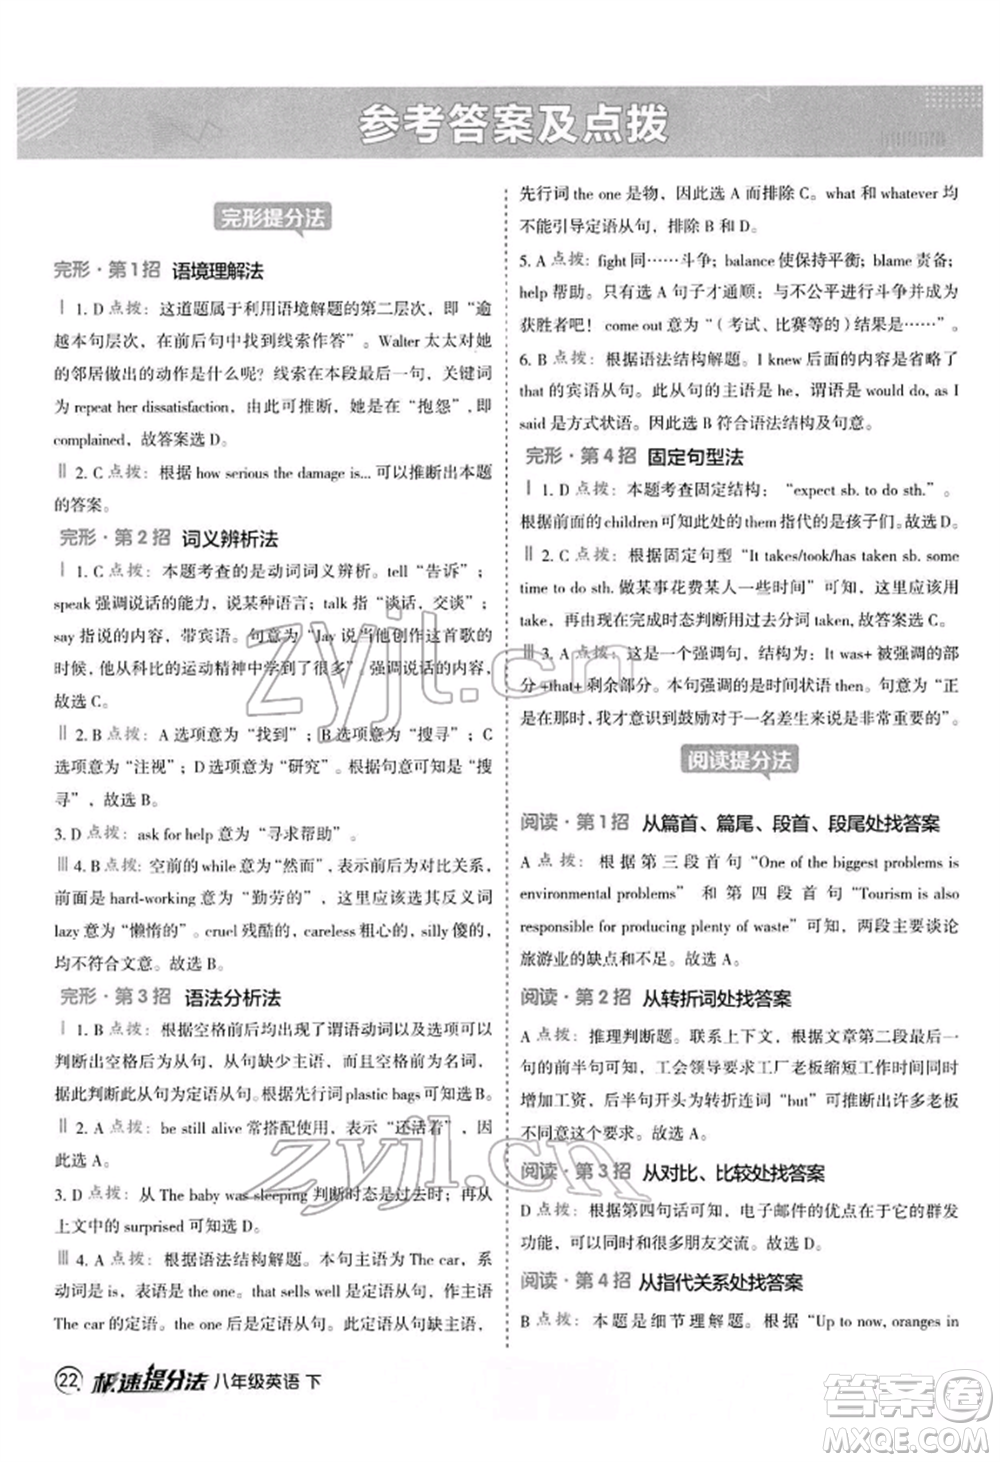 参考答案及点拨
完形提分法
完形·第1招 语境理解法
Ⅰ 1. D 点拨：这道题属于利用语境解题的第二层次，即“逾
越本句层次，在前后句中找到线索作答”。Walter 太太对她
的邻居做出的动作是什么呢？线索在本段最后一句，关键词
为 repeat her dissatisfaction，由此可推断，她是在“抱怨”，即
complained，故答案选 D。
Ⅱ 2. C 点拨：根据 how serious the damage is... 可以推断出本题
的答案。
完形·第2招 词义辨析法
Ⅰ 1. C 点拨：本题考查的是动词词义辨析。tell “告诉”；
speak 强调说话的能力，说某种语言；talk 指“谈话，交谈”；
say 指说的内容，带宾语。句意为“Jay 说当他创作这首歌的
时候，他从科比的运动精神中学到了很多”，强调说话的内容，
故选 C。
Ⅱ 2. B 点拨：A 选项意为“找到”；B 选项意为“搜寻”；C
选项意为“注视”；D 选项意为“研究”。根据句意可知是“搜
寻”，故选 B。
3. D 点拨：ask for help 意为“寻求帮助”。
Ⅲ 4. B 点拨：空前的 while 意为“然而”，表示前后的对比关
系。前面的 hard-working 意为“勤劳的”，这里应该选其反义词
lazy 意为“懒惰的”。cruel 残酷的，careless 粗心的，silly 傻的，
均不符合文意。故选 B。
完形·第3招 语法分析法
Ⅰ 1. B 点拨：根据空格前后均出现了谓语动词以及语境可以
判断出空格后为从句，从句缺少主语，而且空格前为名词，
据此判断此从句为定语从句。根据先行词 plastic bags 可知选 B。
Ⅱ 2. A 点拨：be still alive 常搭配使用，表示“还活着”，因
此选 A。
3. D 点拨：从 The baby was sleeping 判断时态是过去时；再从
上文中的 surprised 可知选 D。
Ⅲ 4. A 点拨：根据语法结构解题。本句主语为 The car，系
动词是 is，表语是 mine。that sells well 是定语从句，作主语
The car 的定语。the one 后是定语从句。此定语从句缺主语，
先行词 the one 是物，因此选 A 而排除 C。what 和 whatever 均
不能引导定语从句，排除 B、D。故选 A。
5. A 点拨：fight 同……斗争；balance 使保持平衡；blame 责备；
help 帮助。只有选 A 句子才通顺：与不公平进行斗争并成为
获胜者吧！come out 意为“（考试、比赛等的）结果是……”。
6. B 点拨：根据语法结构解题。I knew 后面的内容是省略了
that 的宾语从句。此从句的主语是 he，谓语是 would do, as I
said 是方式状语。故选 B 符合语法结构及句意。
完形·第4招 固定句型法
Ⅰ 1. D 点拨：本题考查固定结构：“expect sb. to do sth.”。
根据前面的 children 可知此处的 them 指代的是孩子们。故选 D。
Ⅱ 2. C 点拨：根据固定句型“It takes/took/has taken sb. some
time to do sth. 做某事花费某人一些时间”可知，这里应该用
take，再由现在完成时态判断用过去分词 taken, 故答案选 C。
Ⅲ 3. A 点拨：这是一个强调句，结构为：It was+ 被强调部
分 +that+ 剩余部分。本句强调的是时间状语 then。句意为“正
是在那时，我才意识到鼓励对于一名差生来说是非常重要的”。
阅读提分法
阅读·第1招 从篇首、篇尾、段首、段尾处找答案
A 点拨：根据第三段首句“One of the biggest problems is
environmental problems” 和第四段首句“Tourism is also
responsible for producing plenty of waste” 可知，两段主要谈论
旅游业的缺点和不利。故选 A。
阅读·第2招 从转折词处找答案
A 点拨：推理判断题。联系上下文，根据文章第二段最后一句
的前半句可知，工会领导要求工厂老板缩短工作时间同时
增加工资，后半句开头为转折连词“but”可推断出许多老板
不同意这个要求。故选 A。
阅读·第3招 从对比、比较处找答案
D 点拨：根据第四句话可知，电子邮件的优点在于它的群发
功能，可以和很多朋友交流。故选 D。
阅读·第4招 从指代关系处找答案
B 点拨：本题是细节理解题。根据“Up to now, oranges in
22 极速提分法 八年级英语 下
zyjl.cn
zyjl.cn
答案圈
MXQE.COM